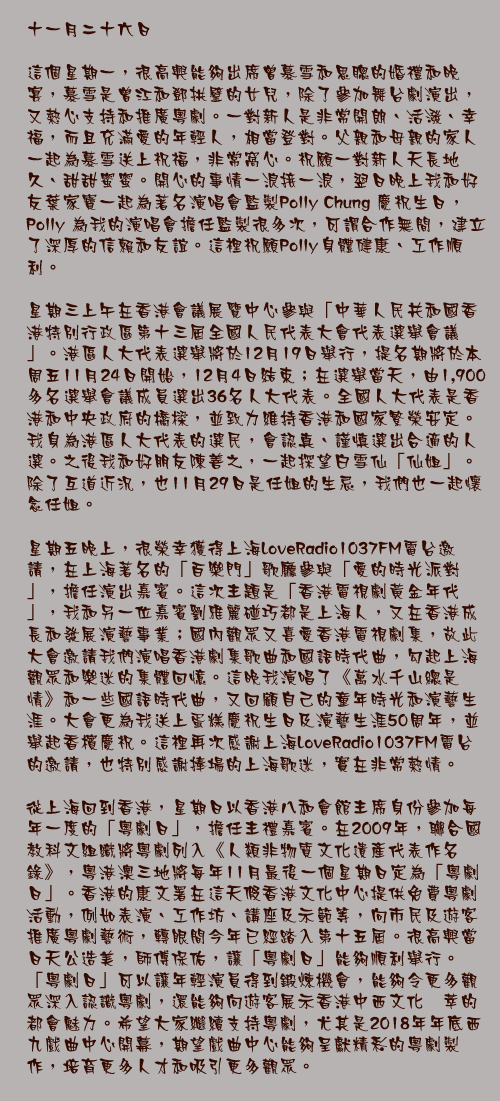 十一月二十六日
這個星期一，很高興能夠出席曾慕雪和恩聰的婚禮和晚
宴，慕雪是曾江和鄧拱璧的女兒，除了參加舞台劇演出，
又熱心支持和推廣粵劇。一對新人是非常開朗、活潑、幸
福，而且充滿愛的年輕人，相當登對。父親和母親的家人
一起為慕雪送上祝福，非常窩心。祝願一對新人天長地
久、甜甜蜜蜜。開心的事情一浪接一浪，翌日晚上我和好
友葉家寶一起為著名演唱會監製Polly Chung 慶祝生日，
Polly 為我的演唱會擔任監製很多次，可謂合作無間，建立
了深厚的信賴和友誼。這裡祝願Polly身體健康、工作順
利。
星期三上午在香港會議展覽中心參與「中華人民共和國香
港特別行政區第十三屆全國人民代表大會代表選舉會議
」。港區人大代表選舉將於12月19日舉行，提名期將於本
周五11月24日開始，12月4日結束；在選舉當天，由1,900
多名選舉會議成員選出36名人大代表。全國人大代表是香
港和中央政府的橋樑，並致力維持香港和國家繁榮安定。
我身為港區人大代表的選民，會認真、謹慎選出合適的人
選。之後我和好朋友陳善之，一起探望白雪仙「仙姐」。
除了互道近況，也11月29日是任姐的生忌，我們也一起懷
念任姐。
星期五晚上，很榮幸獲得上海loveRadio1037FM電台邀
請，在上海著名的「百樂門」歌廳參與「愛的時光派對
」，擔任演出嘉賓。這次主題是「香港電視劇黃金年代
」，我和另一位嘉賓劉雅麗碰巧都是上海人，又在香港成
長和發展演藝事業；國內觀眾又喜愛香港電視劇集，故此
大會邀請我們演唱香港劇集歌曲和國語時代曲，勾起上海
觀眾和樂迷的集體回憶。這晚我演唱了《萬水千山總是
情》和一些國語時代曲，又回顧自己的童年時光和演藝生
涯。大會更為我送上蛋糕慶祝生日及演藝生涯50周年，並
舉起香檳慶祝。這裡再次感謝上海loveRadio1037FM電台
的邀請，也特別感謝捧場的上海歌迷，實在非常熱情。
從上海回到香港，星期日以香港八和會館主席身份參加每
年一度的「粵劇日」，擔任主禮嘉賓。在2009年，聯合國
教科文組織將粵劇列入《人類非物質文化遺產代表作名
錄》，粵港澳三地將每年11月最後一個星期日定為「粵劇
日」。香港的康文署在這天假香港文化中心提供免費粵劇
活動，例如表演、工作坊、講座及示範等，向市民及遊客
推廣粵劇藝術，轉眼間今年已經踏入第十五屆。很高興當
日天公造美，師傅保佑，讓「粵劇日」能夠順利舉行。
「粵劇日」可以讓年輕演員得到鍛煉機會，能夠令更多觀
眾深入認識粵劇，還能夠向遊客展示香港中西文化　萃的
都會魅力。希望大家繼續支持粵劇，尤其是2018年年底西
九戲曲中心開幕，期望戲曲中心能夠呈獻精彩的粵劇製
作，培育更多人才和吸引更多觀眾。